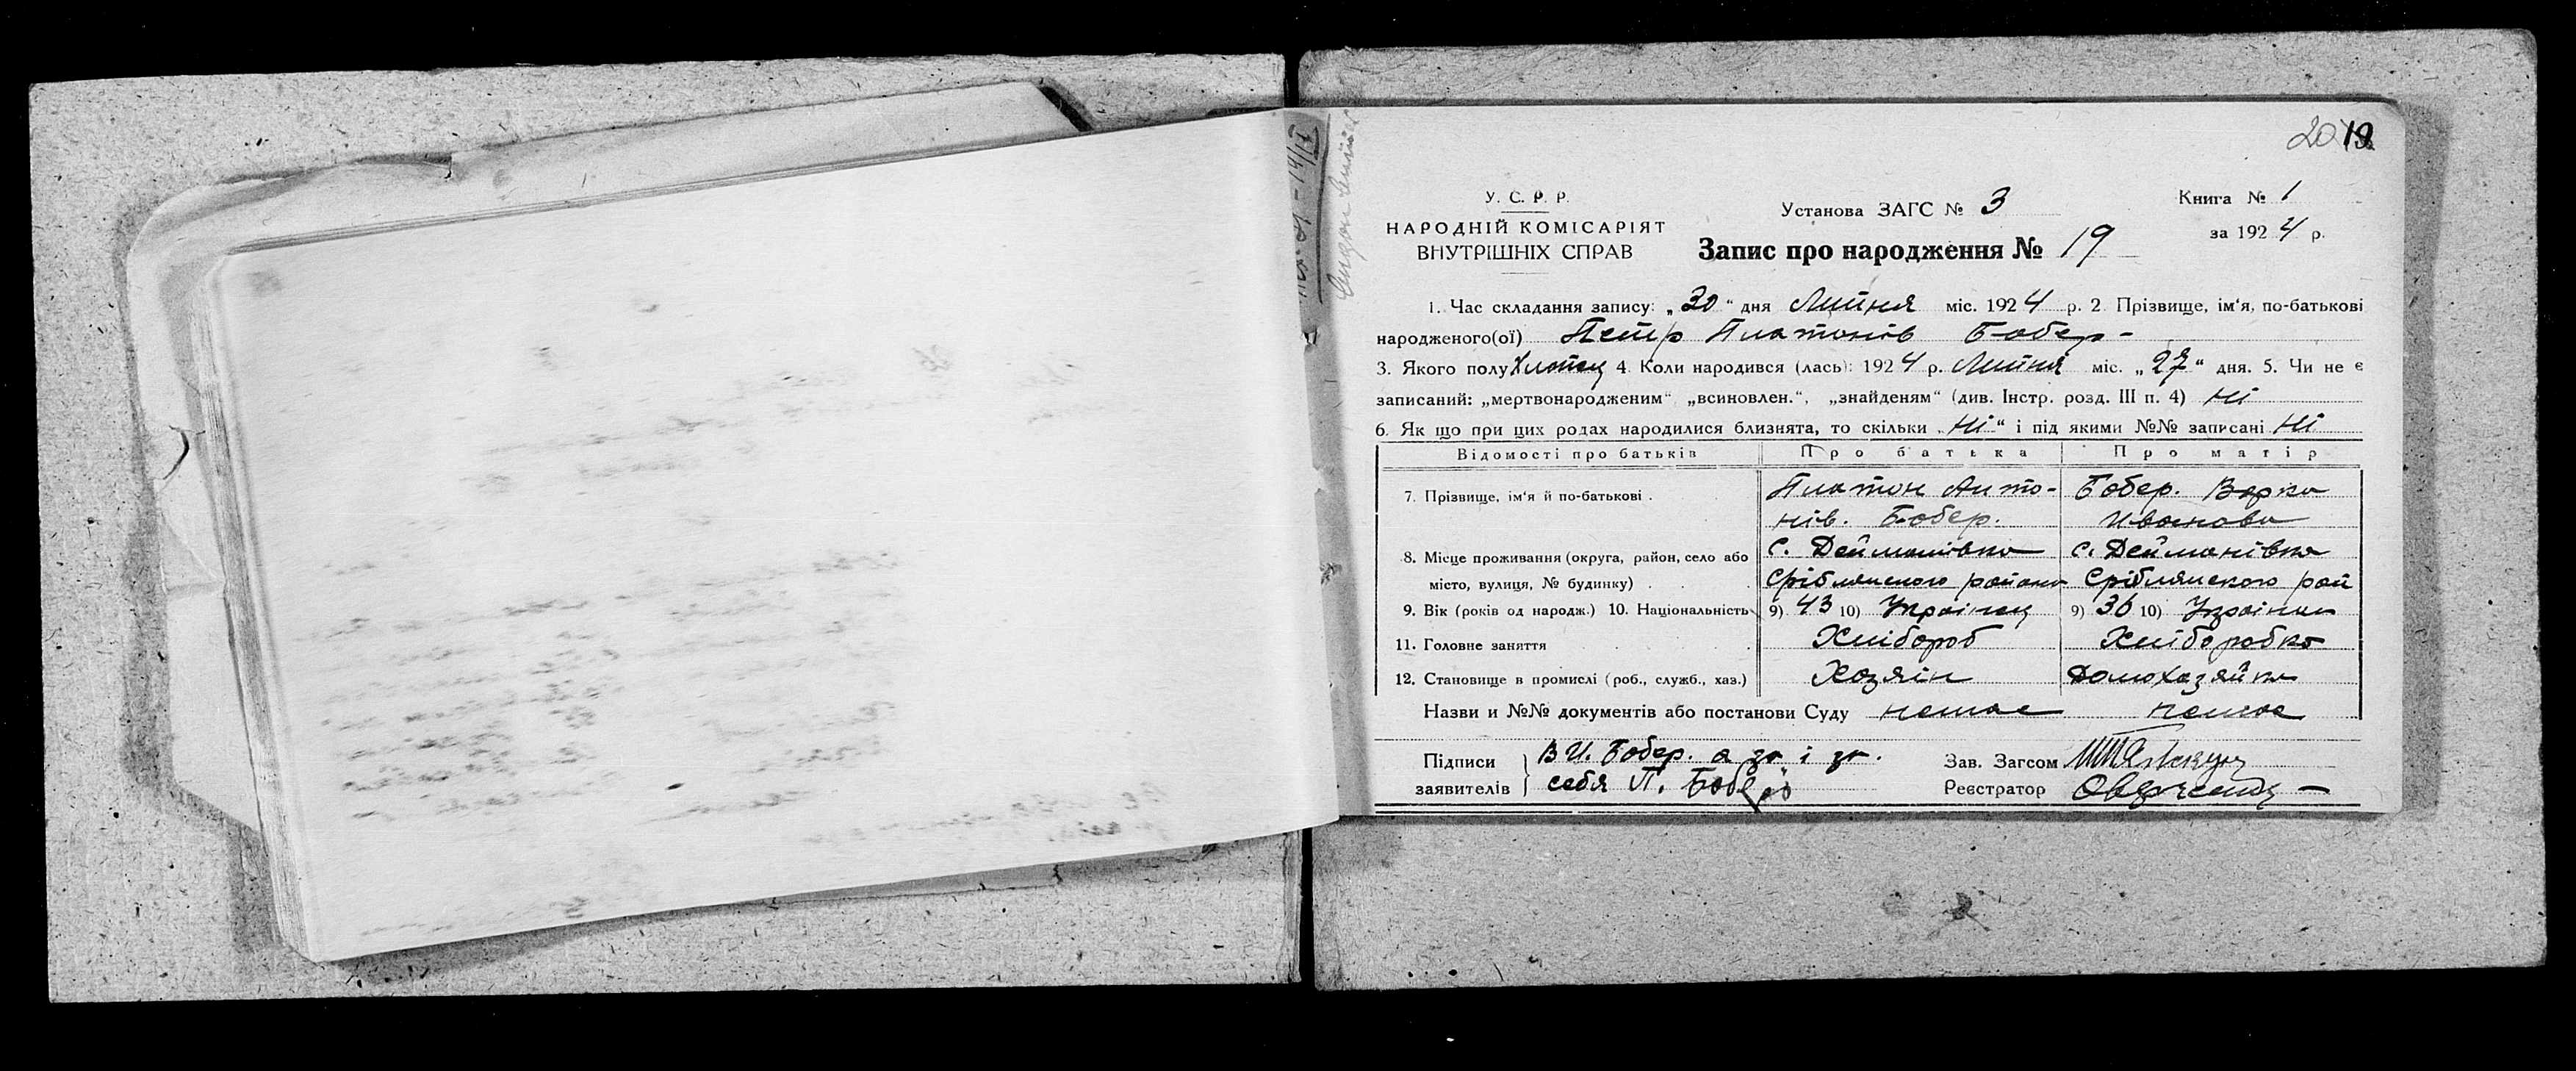 19
У. С. Р. Р.
НАРОДНІЙ КОМІСАРІЯТ
ВНУТРІШНІХ СПРАВ
Установа ЗАГС № 3
Запис про народження № 19
Книга № 1
за 1924 р.
1. Час складання запису: „30“ дня Липня міс. 1924 р. 2. Прізвище, ім‘я, по-батькові
народженого(ої) Петр Платонів Бобер -
3. Якого полу Хлопец 4. Коли народився (лась): 1924 р. Липня міс. „27“ дня. 5. Чи не є
записаний: „мертвонародженим“ „всиновлен.“, „знайденям“ (див. Інстр. розд. III п. 4) Ні
6. Як що при цих родах народилися близнята, то скільки „Ні“ і під якими №№ записані Ні
Відомості про батьків Про батька Про матір
7. Прізвище, ім‘я й по-батькові . Платон Анто- Бобер. Варка
нів. Бобер. Иванова
8. Місце проживання (округа, район, село або с. Дейманівка с. Дейманівка
місто, вулиця, № будинку) . . . Сріблянского району Сріблянского рай
9. Вік (років од народж.) 10. Національність 9) 43 10) Українец 9) 36 10) Українка
11. Головне заняття . . . Хлібороб Хлібробка
12. Становище в промислі (роб., служб., хаз.) Хозяін Домохазяйка
Назви и №№ документів або постанови Суду немае немае
Підписи В И. Бобер. а за і за.
заявителів себя П. Бобер
Зав. Загсом
Реєстратор